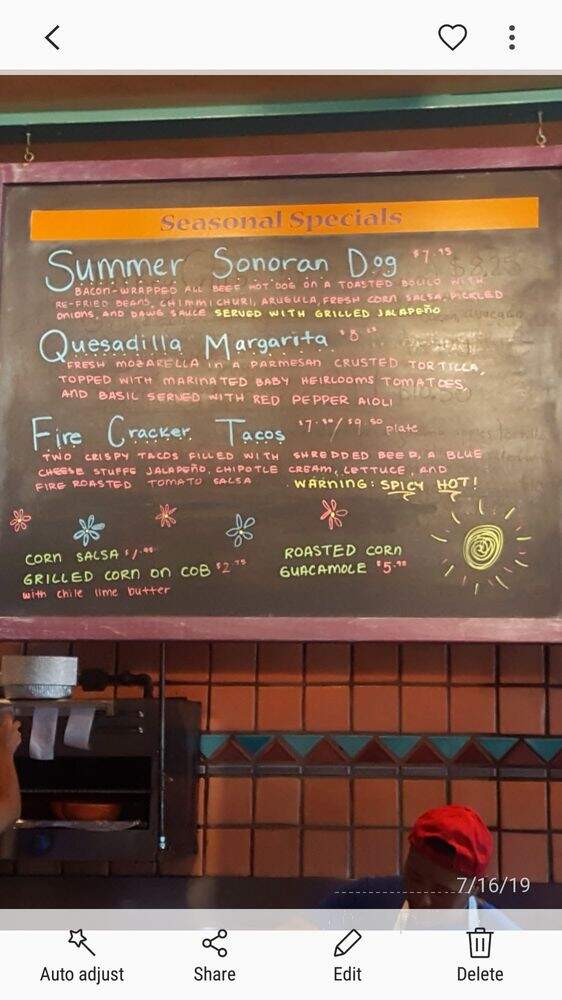 Seasonal Specials
Summer Sonoran Dog $7.95
BACON-WRAPPED ALL BEEF HOT DOG ON A TOASTED BOLILO WITH
RE-FRIED BEANS, CHIMMICHURI, ARUGULA, FRESH CORN SALSA, PICKLED
ONIONS, AND DAWG SAUCE SERVED WITH GRILLED JALAPEÑO
Quesadilla Margarita $8
FRESH MOZARELLA IN A PARMESAN CRUSTED TORTILLA,
TOPPED WITH MARINATED BABY HEIRLOOMS TOMATOES,
AND BASIL SERVED WITH RED PEPPER AIOLI
Fire Cracker Tacos $7.50/$9.50 plate
TWO CRISPY TACOS FILLED WITH SHREDDED BEEF, A BLUE
CHEESE STUFFS JALAPEÑO, CHIPOTLE CREAM, LETTUCE, AND
FIRE ROASTED TOMATO SALSA . WARNING: SPICY HOT!
CORN SALSA
GRILLED CORN ON COB $2.75
with chile lime butter
ROASTED CORN
GUACAMOLE $5.90
7/16/19
Auto adjust Share Edit Delete